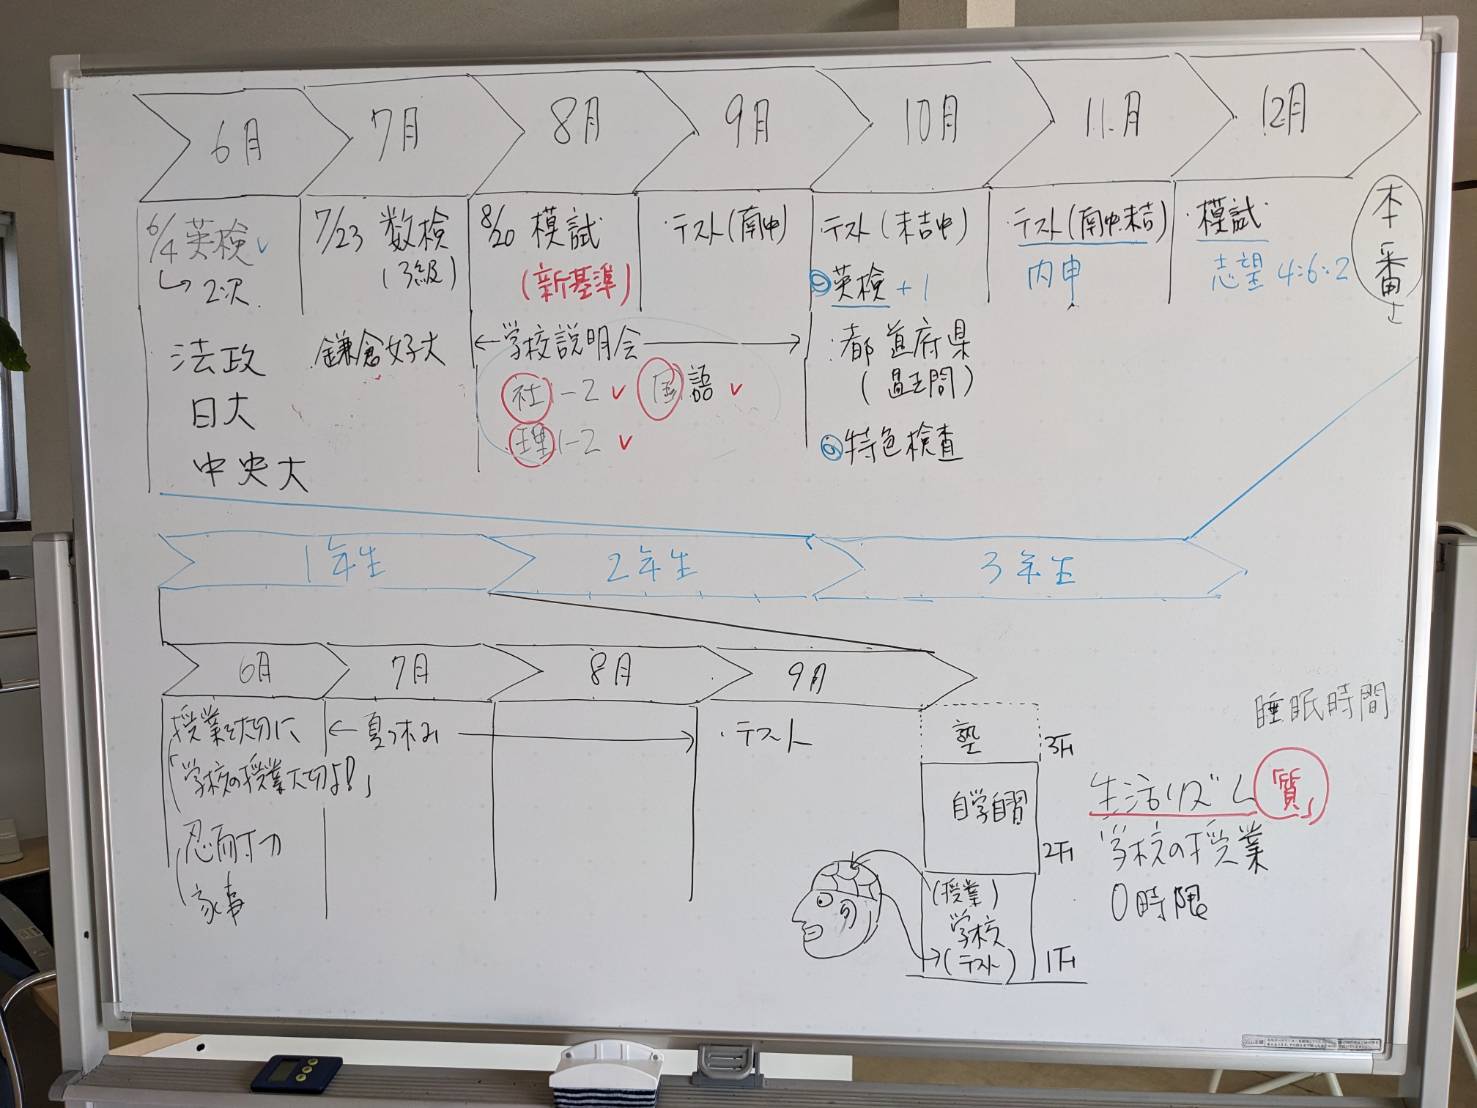 6月 7月 8月 9月 10月 11月 12月
6/4 英検 ✓
→ 2次
法政
日大
中央大
7/23 数検
(3級)
鎌倉女子大
8/20 模試
(新基準)
←学校説明会→
社1-2 ✓ 国語 ✓
理1-2 ✓
・テスト(南中)
・テスト(末吉中)
◎英検+1
・都道府県
(過去問)
◎特色検査
・テスト(南中末吉)
内申
・模試
志望 4:6:2
本番
1年生 2年生 3年生
6月 7月 8月 9月
授業を大切に
「学校の授業大切よ!」
忍耐力
家事
←夏休み→
・テスト
塾 3F
自学自習 2F
(授業)
学校
→(テスト) 1F
睡眠時間
生活リズム 「質」
学校の授業
0時限